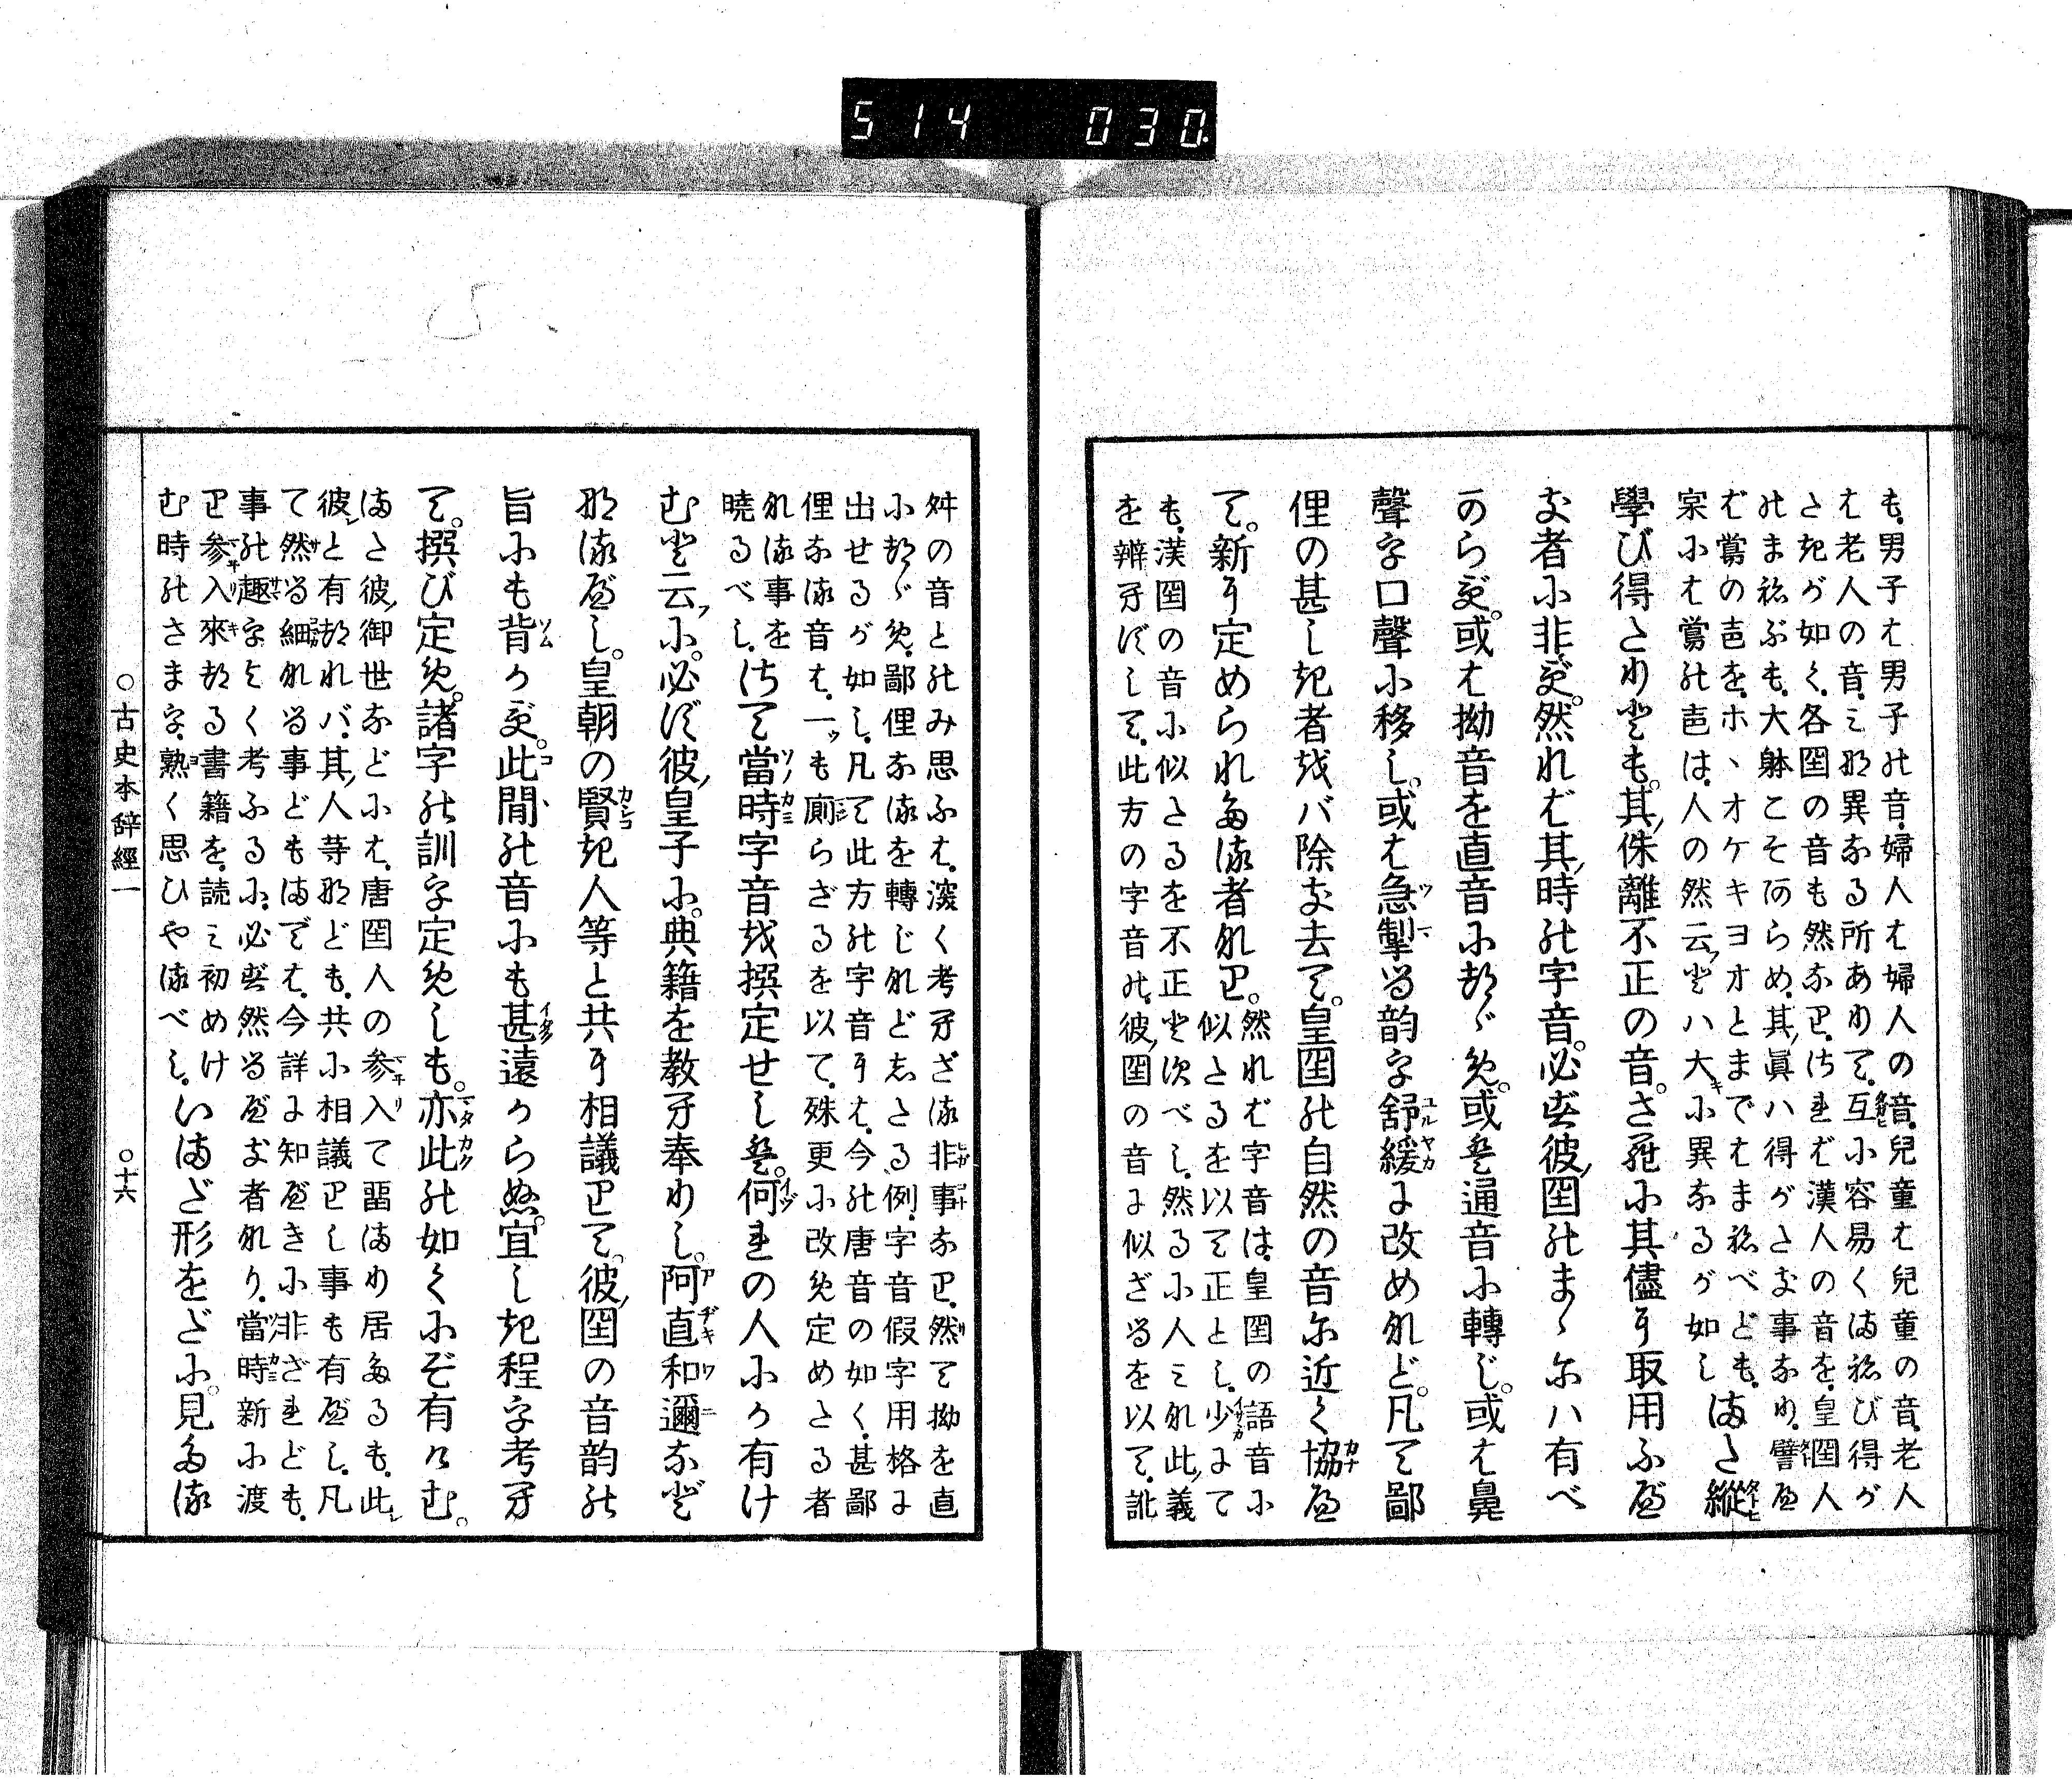 514 030.
も、男子は男子の音、婦人は婦人の音、兒童は兒童の音、老人
は老人の音と、異なる所ありて、互に容易くまねび得が
たきが如く、各国の音も然なり。されば漢人の音を、皇国人
のまねぶも、大躰こそあらめ、其眞ハ得がたき事なり。譬へ
ば鶯の声を、ホヽオケキヨオとまではまねべども、
実には鶯の声は、人の然云フとハ大キに異なるが如し
またた縦
學び得たりとも。其ノ侏離不正の音。さながらに其儘に取用ふべ
き者に非ず。然れば其ノ時の字音。必ず彼ノ国のまゝにハ有べ
からず。或は拗音を直音になほし。或は通音に轉じ。或は鼻
聲を口聲に移し。或は急掣る韵を舒緩に改めなど。凡て鄙
俚の甚しき者をバ除き去て。皇国の自然の音に近く協へ
て。新に定められたる者なり。
然れば字音は、皇国の語音に
似たるを以て正とし、少にて
も、漢国の音に似たるを不正と次べし。然るに人みな此ノ義
を辨へずして、此方の字音の、彼ノ国の音に似ざるを以て、訛
舛の音とのみ思ふは、深く考へざる非事なり、然て拗を直
になほし、鄙俚なるを轉じなどしたる例、字音假字用格に
出せるが如し。凡て此方の字音には、今の唐音の如く、甚鄙
俚なる音は、一ツも廁らざるを以て、殊更に改め定めたる者
なる事を
曉るべし。
さて當時字音を撰定せしは。何れの人にか有け
むと云フに。必ず彼ノ皇子に。典籍を教へ奉りし。阿直和邇など
なるべし。皇朝の賢き人等と共に相議りて。彼ノ国の音韵の
旨にも背かず。此間の音にも甚遠からぬ。宜しき程を考へ
て。撰び定め。諸字の訓を定めしも。亦此の如くにぞ有けむ。
また彼ノ御世などには、唐国人の参入て畱まり居たるも、此シ
彼シと有なれバ、其ノ人等なども、共に相議りし事も有べし、凡
て然る細なる事どもまでは、今詳に知べきに非ざれども、
事の趣をよく考ふるに、必ず然るべき者なり、當時新に渡
り参入來なる書籍を、読み初めけ
む時のさまを、熟く思ひやるべし、
いまだ形をだに。見たる
○古史本辞經一　○十六